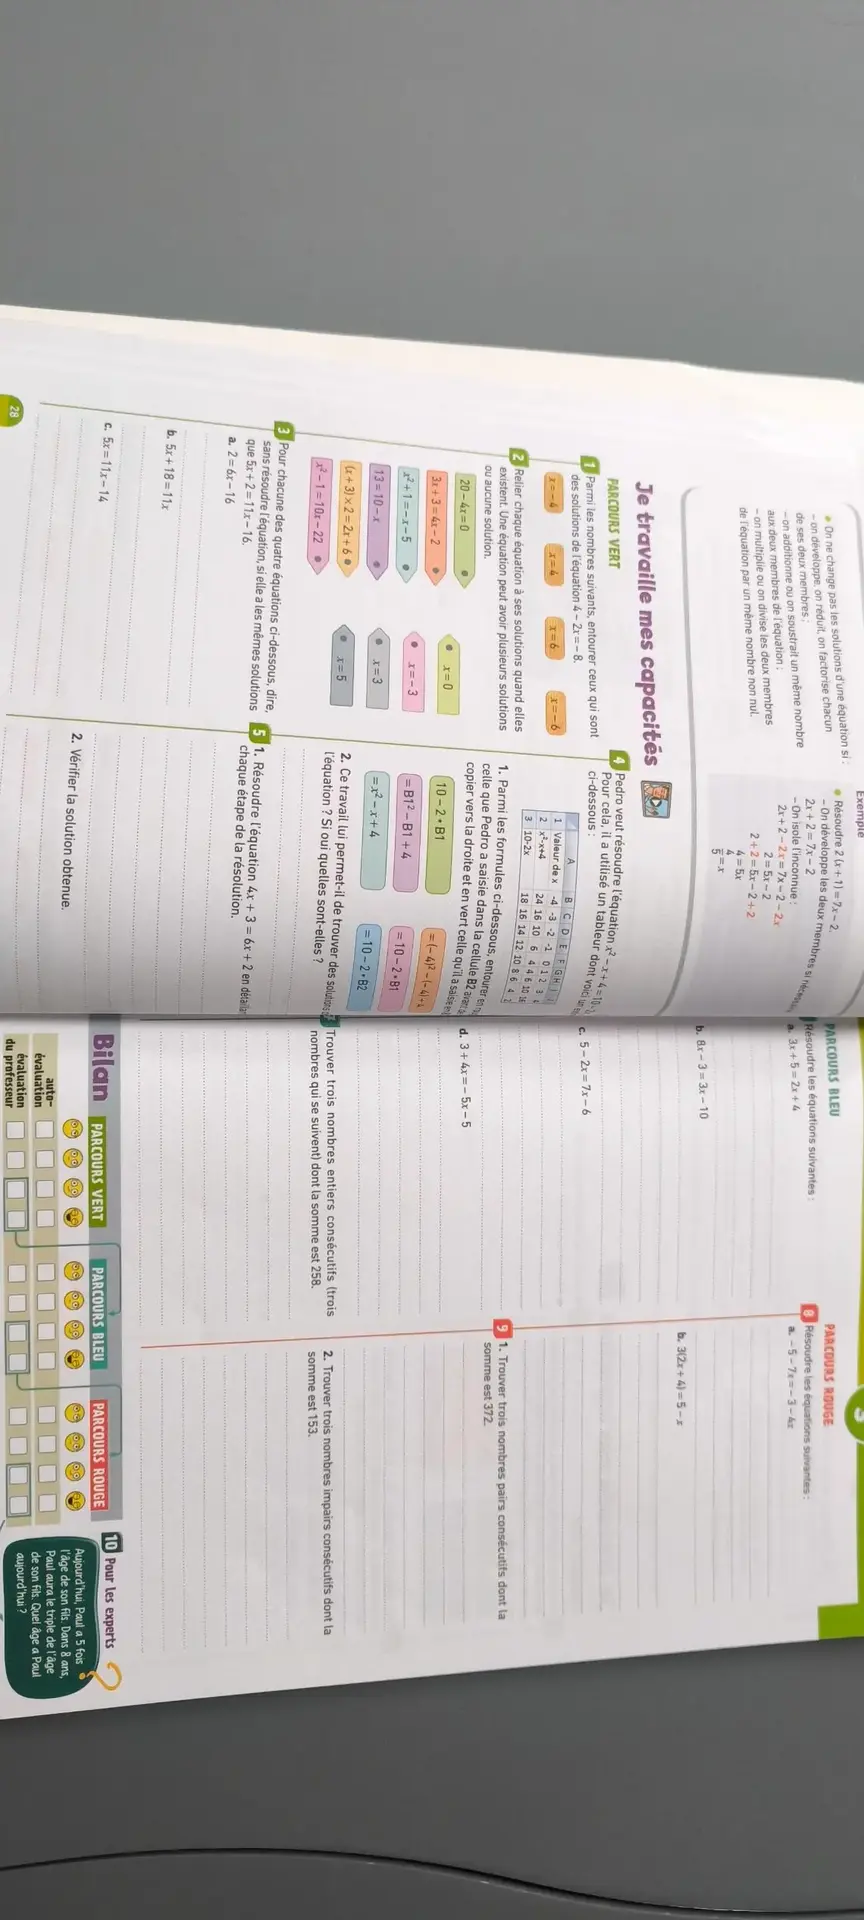 • On ne change pas les solutions d'une équation si :
– on développe, on réduit, on factorise chacun
de ses deux membres ;
– on additionne ou on soustrait un même nombre
aux deux membres de l'équation ;
– on multiplie ou on divise les deux membres
de l'équation par un même nombre non nul.
Exemple
• Résoudre 2(x + 1) = 7x – 2.
– On développe les deux membres si
2x + 2 = 7x – 2
– On isole l'inconnue :
2x + 2 – 2x = 7x – 2 – 2x
2 = 5x – 2
2 + 2 = 5x – 2 + 2
4 = 5x
4/5 = x
Je travaille mes capacités
PARCOURS VERT
1 Parmi les nombres suivants, entourer ceux qui sont
des solutions de l'équation 4 – 2x = – 8.
x = – 4
x = 4
x = 6
x = – 6
2 Relier chaque équation à ses solutions quand elles
existent. Une équation peut avoir plusieurs solutions
ou aucune solution.
20 – 4x = 0
3x + 3 = 4x – 2
x² + 1 = – x – 5
13 = 10 – x
(x + 3) × 2 = 2x + 6
x² – 1 = 10x – 22
x = 0
x = – 3
x = 3
x = 5
3 Pour chacune des quatre équations ci-dessous, dire,
sans résoudre l'équation, si elle a les mêmes solutions
que 5x + 2 = 11x – 16.
a. 2 = 6x – 16
b. 5x + 18 = 11x
c. 5x = 11x – 14
28
4 Pedro veut résoudre l'équation x² – x + 4 = 10
Pour cela, il a utilisé un tableur dont voici
ci-dessous :
A B C D E F G H
1 Valeur de x -4 -3 -2 -1 0 1 2 3
2 x²-x+4 24 16 10 6 4 4 6 10
3 10-2x 18 16 14 12 10 8 6 4
1. Parmi les formules ci-dessous, entourer en
celle que Pedro a saisie dans la cellule B2
copier vers la droite et en vert celle qu'il a
10 – 2 * B1
= (– 4)² – (– 4) + 4
= B1² – B1 + 4
= 10 – 2 * B1
= x² – x + 4
= 10 – 2 * B2
2. Ce travail lui permet-il de trouver des solutions
l'équation ? Si oui quelles sont-elles ?
5 1. Résoudre l'équation 4x + 3 = 6x + 2 en
chaque étape de la résolution.
2. Vérifier la solution obtenue.
PARCOURS BLEU
Résoudre les équations suivantes :
a. 3x + 5 = 2x + 4
b. 8x – 3 = 3x – 10
c. 5 – 2x = 7x – 6
d. 3 + 4x = – 5x – 5
Trouver trois nombres entiers consécutifs (trois
nombres qui se suivent) dont la somme est 258.
PARCOURS ROUGE
8 Résoudre les équations suivantes :
a. – 5 – 7x = – 3 – 4x
b. 3(2x + 4) = 5 – x
9 1. Trouver trois nombres pairs consécutifs dont la
somme est 372.
2. Trouver trois nombres impairs consécutifs dont la
somme est 153.
Bilan
PARCOURS VERT
PARCOURS BLEU
PARCOURS ROUGE
auto-
évaluation
évaluation
du professeur
10 Pour les experts
Aujourd'hui, Paul a 5 fois
l'âge de son fils. Dans 8 ans,
Paul aura le triple de l'âge
de son fils. Quel âge a Paul
aujourd'hui ?